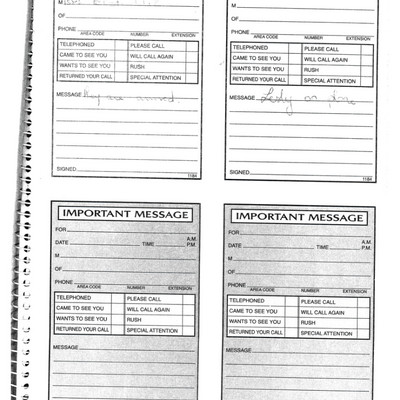 M
OF
PHONE
AREA CODE NUMBER EXTENSION
TELEPHONED PLEASE CALL
CAME TO SEE YOU WILL CALL AGAIN
WANTS TO SEE YOU RUSH
RETURNED YOUR CALL SPECIAL ATTENTION
MESSAGE are
SIGNED
1184
OF
PHONE
AREA CODE NUMBER EXTENSION
TELEPHONED PLEASE CALL
CAME TO SEE YOU WILL CALL AGAIN
WANTS TO SEE YOU RUSH
RETURNED YOUR CALL SPECIAL ATTENTION
MESSAGE on
SIGNED
1184
IMPORTANT MESSAGE
FOR
A.M.
DATE TIME P.M.
M
OF
PHONE
AREA CODE NUMBER EXTENSION
TELEPHONED PLEASE CALL
CAME TO SEE YOU WILL CALL AGAIN
WANTS TO SEE YOU RUSH
RETURNED YOUR CALL SPECIAL ATTENTION
MESSAGE
IMPORTANT MESSAGE
FOR
A.M.
DATE TIME P.M.
M
OF
PHONE
AREA CODE NUMBER EXTENSION
TELEPHONED PLEASE CALL
CAME TO SEE YOU WILL CALL AGAIN
WANTS TO SEE YOU RUSH
RETURNED YOUR CALL SPECIAL ATTENTION
MESSAGE